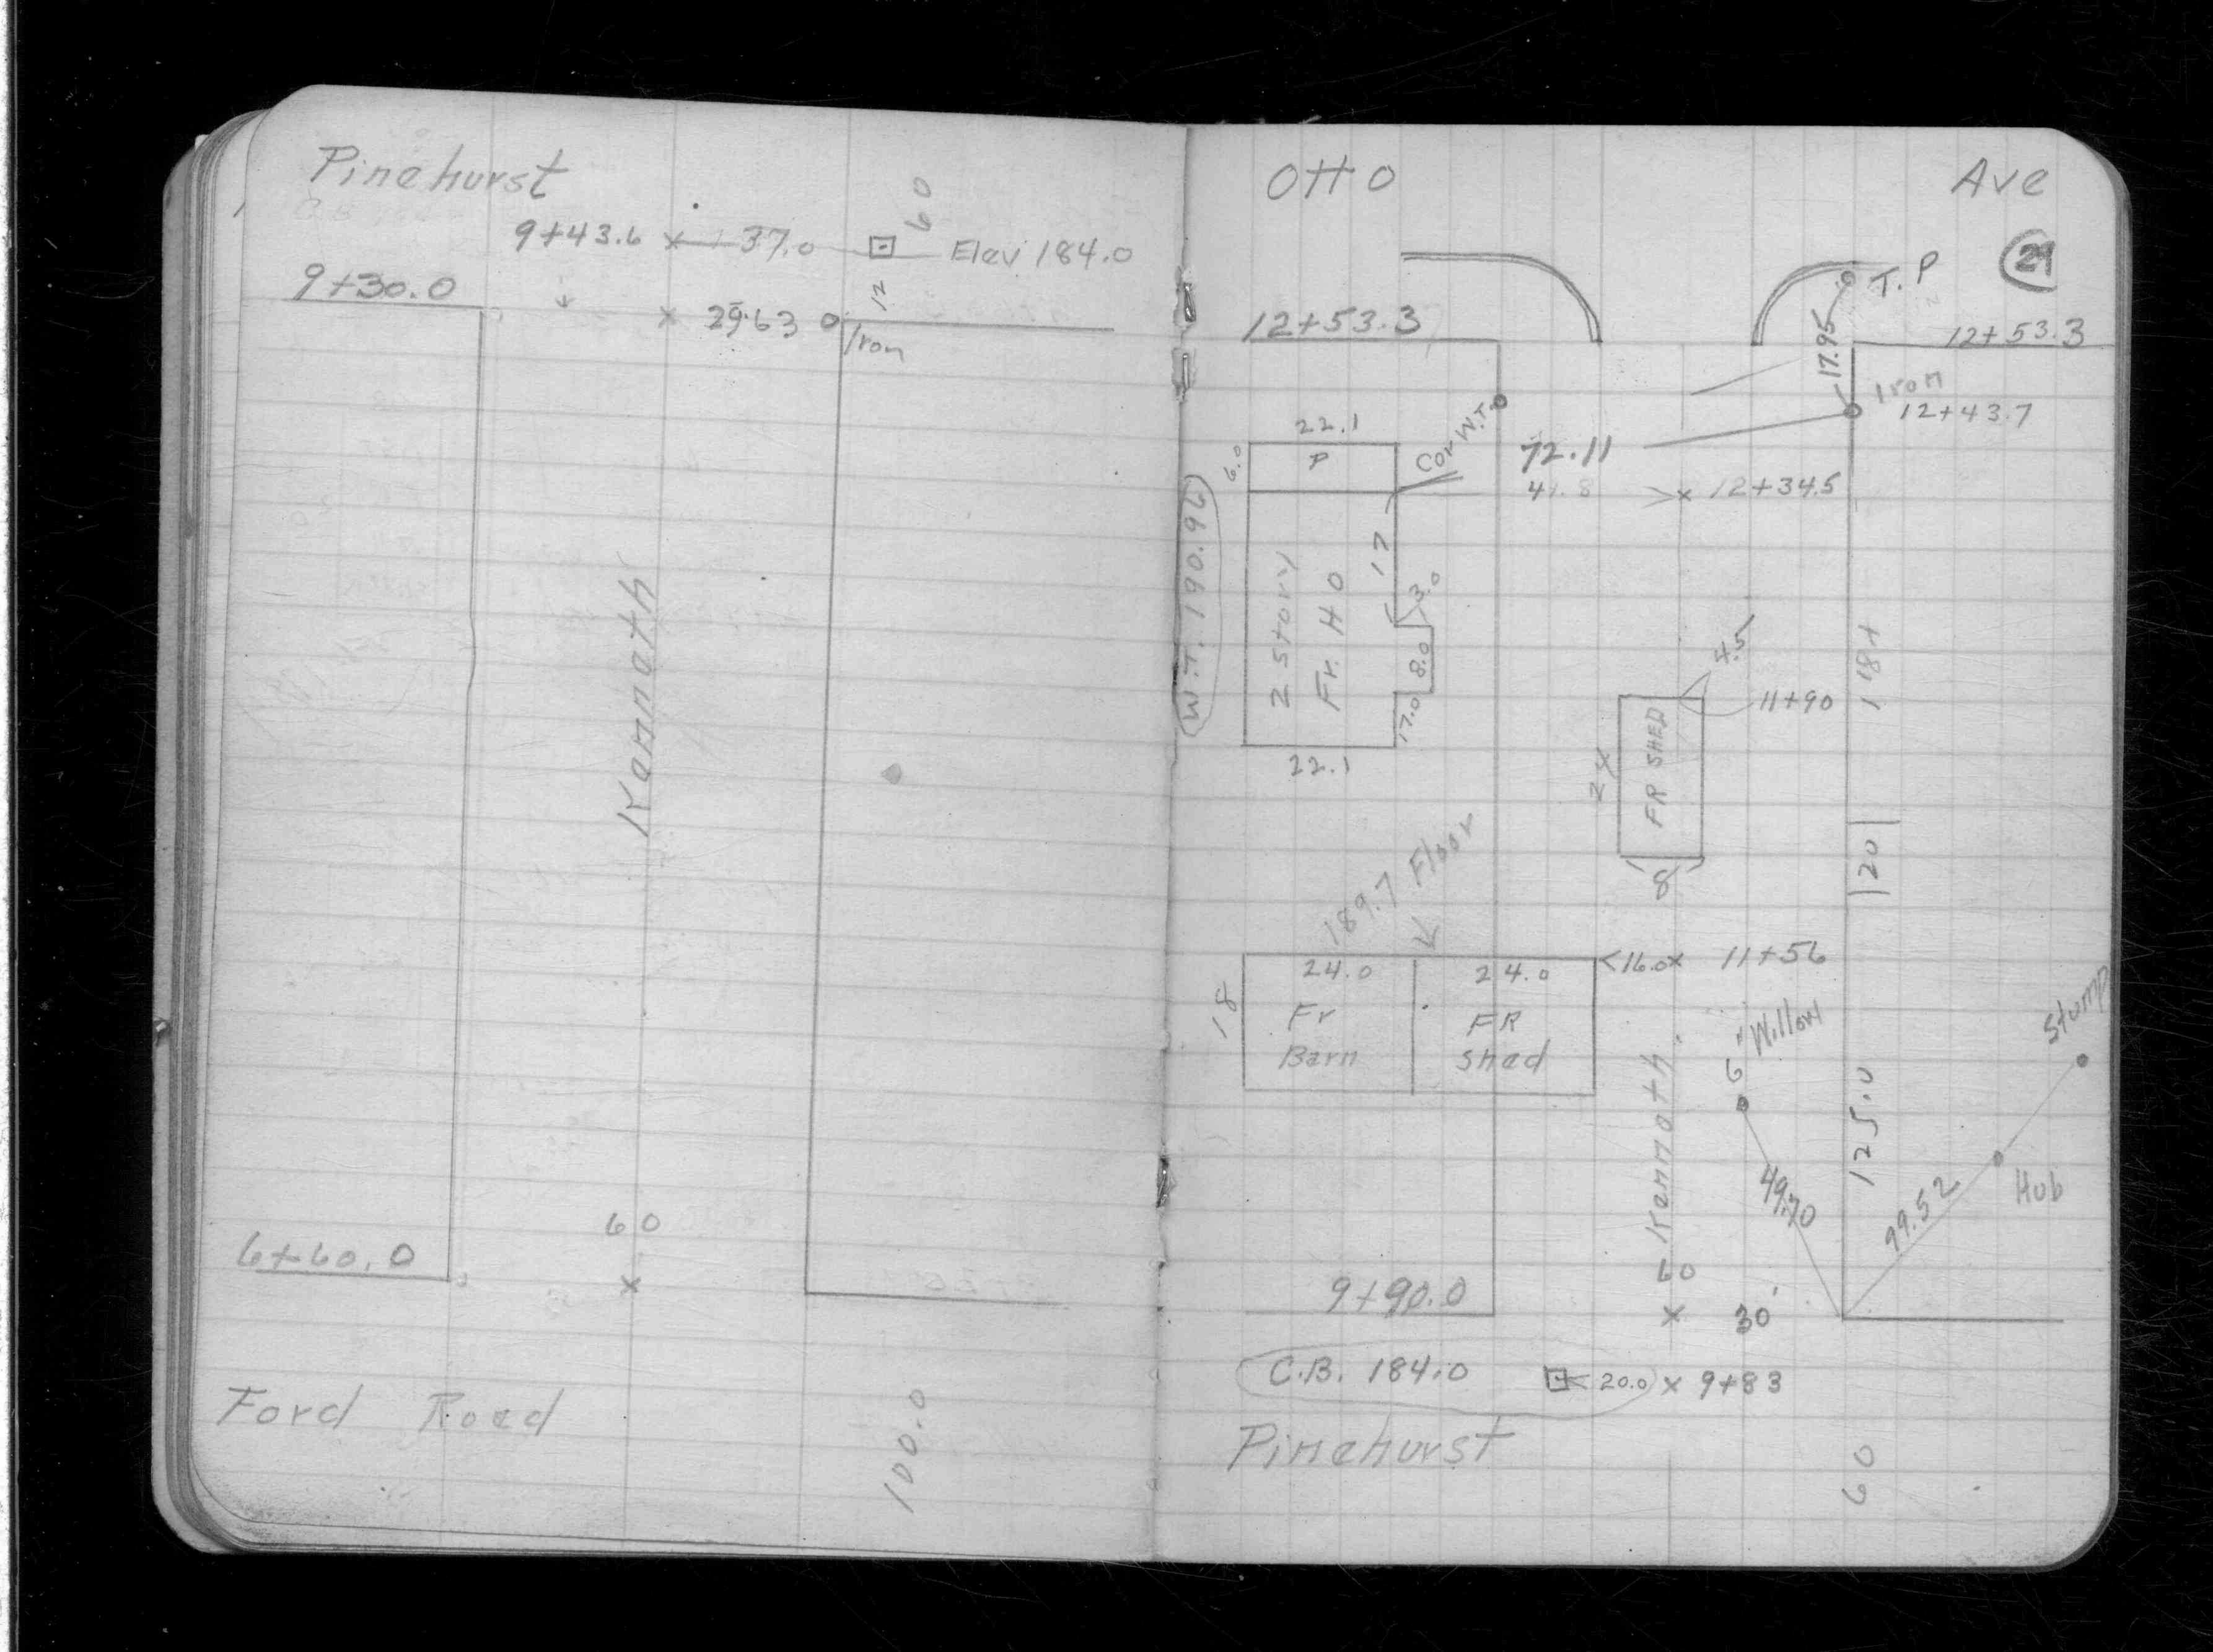 Pinehurst
60
9+43.6 x 37.0 Elev 184.0
9+30.0
12
x 29.63
Iron
Kenmoth
60
6+60.0
x
Ford Road
100.0
Otto Ave
29
T.P
12+53.3
17.95
12+53.3
Iron
12+43.7
22.1
Cor W.T.
72.11
6.0
P
x 12+34.5
W.T. 190.96
17
2 Story
Fr. Ho
3.0
8.0
17.0
22.1
4.5
11+90
18+
FR SHED
8
20
189.7 Floor
24.0
24.0
16.0 x 11+56
18
Fr
Barn
FR
Shed
6" Willow
Stump
Kenmoth.
125.0
49.70
99.52
Hub
60
9+90.0
x 30'
C.B. 184.0
20.0 x 9+83
Pinehurst
60